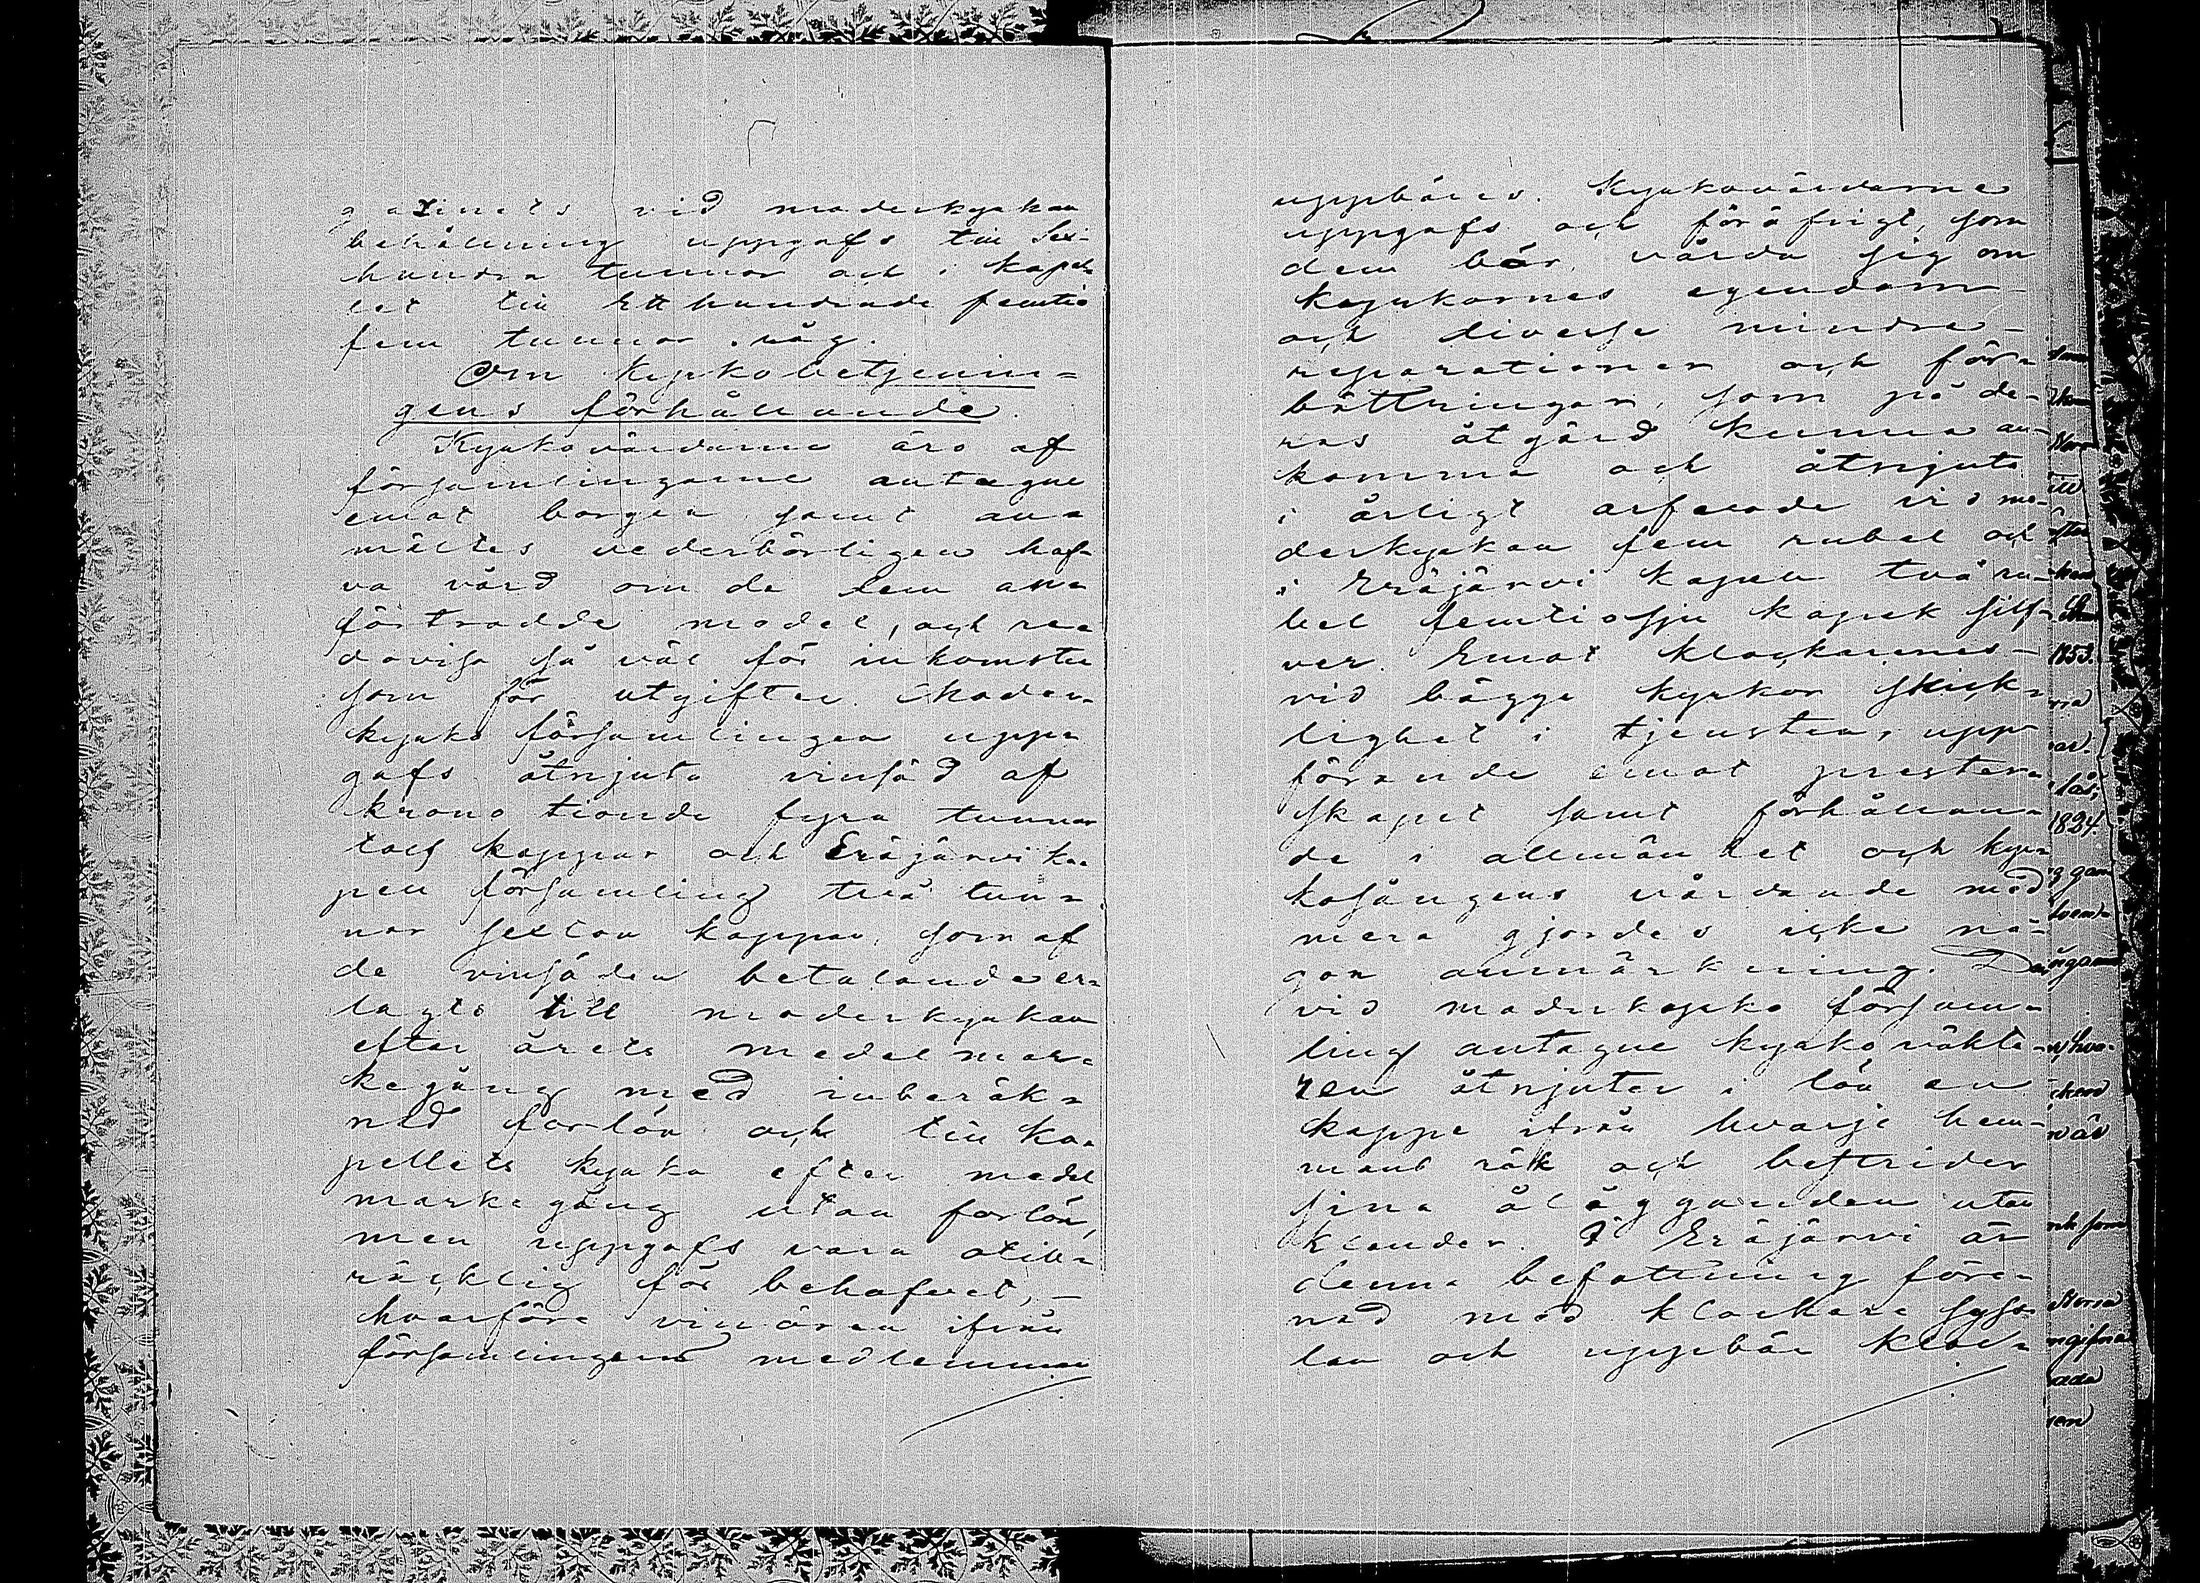 gazinets vid moderkyrkan
behållning uppgafs till Sex-
hundra tunnor och i kapel-
let till Ett hundrade femtio
fem tunnor råg.
Om kyrkobetjenin=
gens förhållande.
Kyrkovärdarne äro af
församlingarne antagne
emot borgen samt an=
mältes vederbörligen haf-
va vård om de dem an=
förtrodde medel, och re=
dovisa så väl för inkomsten
som för utgiften. Moder=
kyrko församlingen upp=
gafs åtnjuta vinsäd af
krono tionde fyra tunnor
tolf kappar och Eräjärvi ka=
pell församling två tun=
nor sexton kappar, som af
de vinsäden betalande er=
lagts till moderkyrkan
efter årets medel mar=
kegång med inberäk=
nad forlön och till ka=
pellets kyrka efter medel
markegång utan forlön,
men uppgafs vara otill=
räcklig för behofvet, –
hvarföre vinören ifrån
församlingens medlemmar
uppbäres. Kyrkovärdarne
uppgafs och föröfrigt, som
dem bör, vårda sig om
kyrkornes egendom
och diverse mindre –
reparationer och för=
bättringar, som på de=
ras åtgärd kunna an=
komma och åtnjuta
i årligt arfvode vid mo=
derkyrkan fem rubel och
i Eräjärvi kapell två ru=
bel femtiosju kopek silf=
ver. Emot klockarenes –
vid bägge kyrkor skick=
lighet i tjensten, upp=
förande emot prester=
skapet samt förhållan=
de i allmänhet och kyr=
kosångens vårdande med
mera gjordes icke nå=
gon anmärkning. Den
vid moderkyrko försam=
ling antagne kyrkoväkta=
ren åtnjuter i lön en
kappe ifrån hvarje hem=
mans rök och bestrider
sina åligganden utan
klander. I Eräjärvi är
denna befattning före=
nad med klockare syss=
lan och uppbär kloc=
1853.
1824